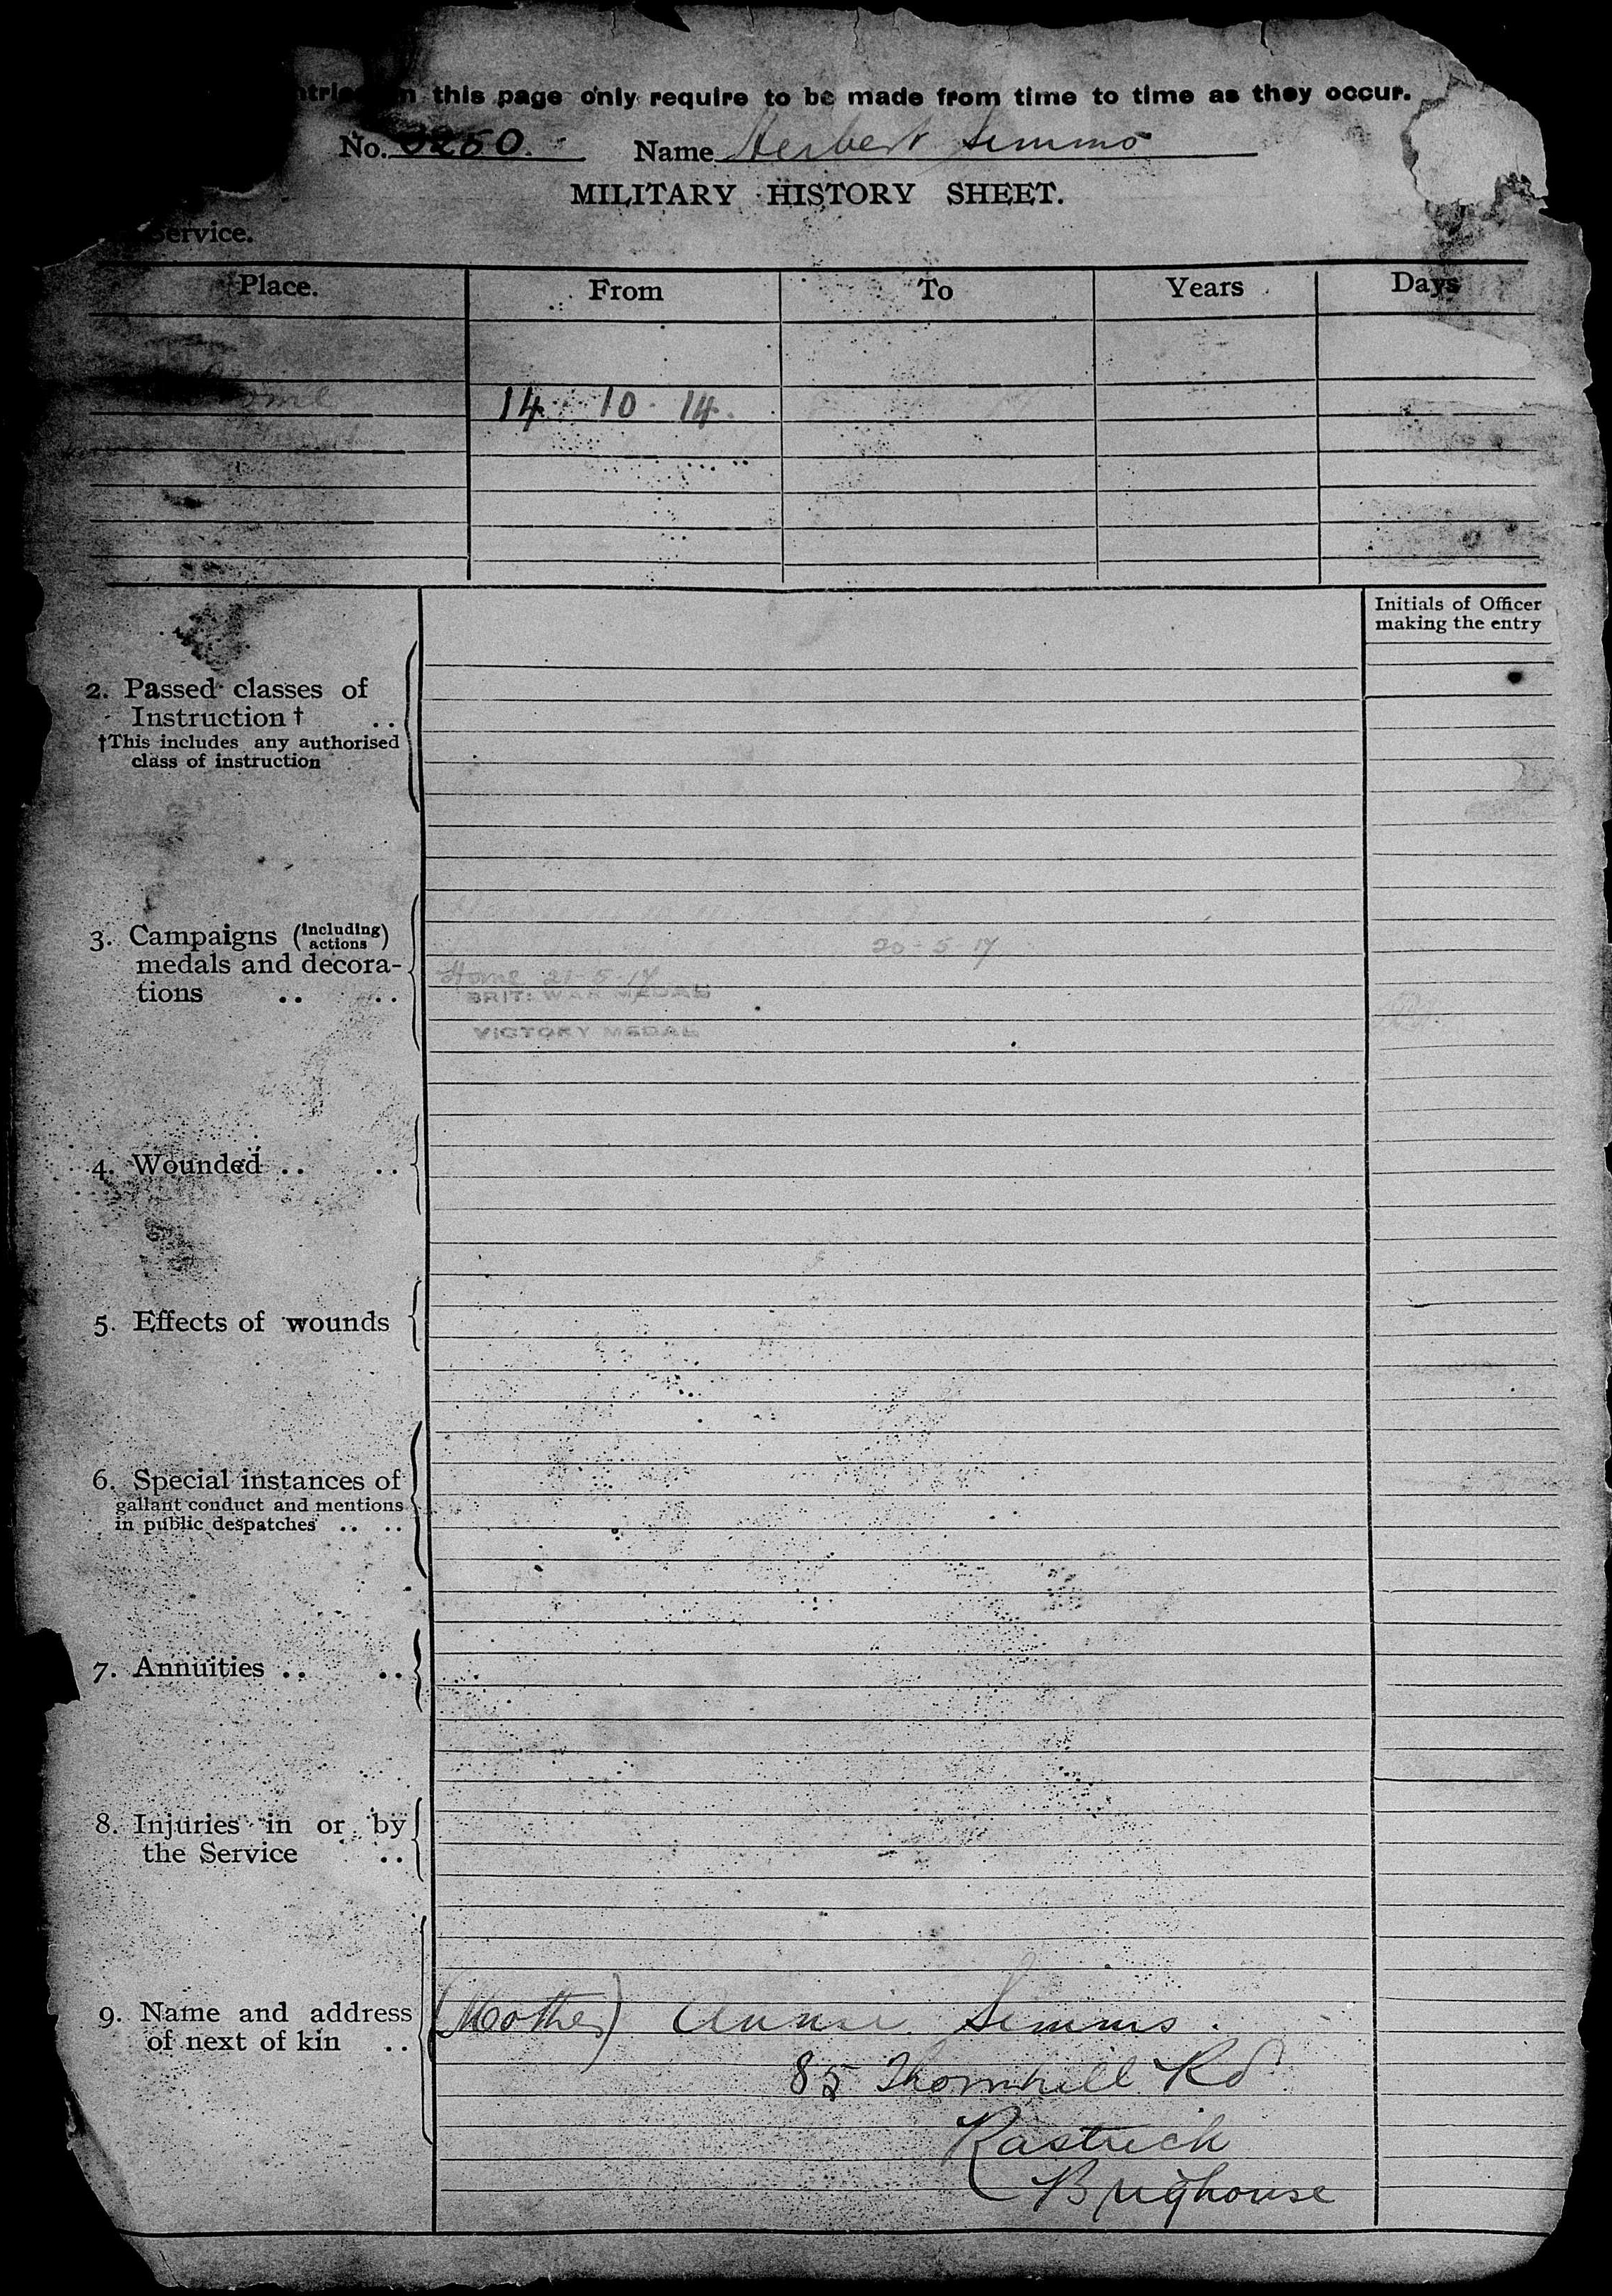 this page only require to be made from time to time as they occur.
No. 3250. Name Herbert Simms
MILITARY HISTORY SHEET.
Service.
Place. From To Years Days
14 10 14.
Initials of Officer
making the entry
2. Passed classes of
Instruction † ..
†This includes any authorised
class of instruction
3. Campaigns (including
actions) 20 - 5 17
medals and decora- Home 21-5-17
tions .. .. BRIT: WAR MEDAL
VICTORY MEDAL
4. Wounded .. ..
5. Effects of wounds
6. Special instances of
gallant conduct and mentions
in public despatches .. ..
7. Annuities .. ..
8. Injuries in or by
the Service ..
9. Name and address (Mother) Annie Simms.
of next of kin ..
85 Thornhill Rd
Rastrick
Brighouse